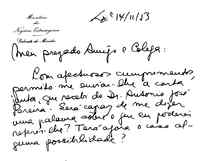 Ministro
dos
Negócios Estrangeiros
Gabinete do Ministro
Lxª 14/11/53
Meu prezado Amigo e Colega:
Com afectuosos cumprimentos,
permito-me enviar-lhe a carta,
junta, que recebi do Dr. António José
Pereira. Será capaz de me dizer
uma palavra sobre o que eu poderei
responder-lhe? Terá o caso al-
guma possibilidade?